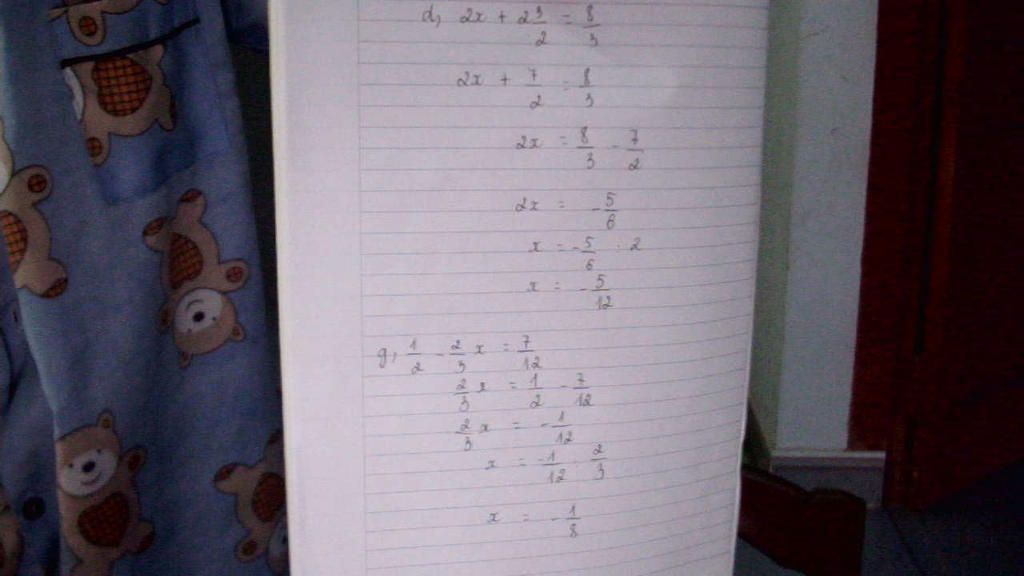 d, 2x + 2 3/2 = 8/3
2x + 7/2 = 8/3
2x = 8/3 - 7/2
2x = -5/6
x = -5/6 : 2
x = -5/12
g, 1/2 - 2/3 x = 7/12
2/3 x = 1/2 - 7/12
2/3 x = -1/12
x = -1/12 : 2/3
x = -1/8